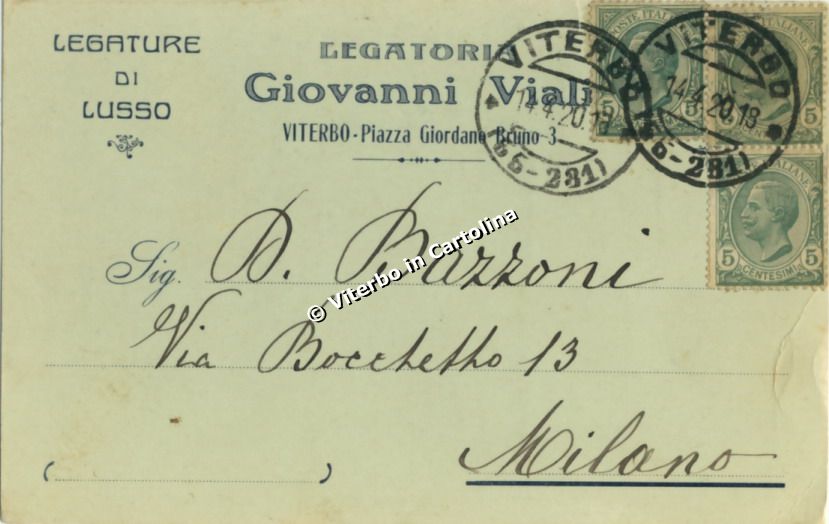 LEGATURE
DI
LUSSO
LEGATORI
Giovanni Viali
VITERBO - Piazza Giordano Bruno 3
VITERBO
14.4.20.19
(56-281)
VITERBO
14.4.20.19
(56-281)
POSTE ITALI
5
5
ALIANE
5
ALIANE
5
5
CENTESIMI
Sig. D. Bazzoni
Via Bocchetto 13
Milano
© Viterbo in Cartolina